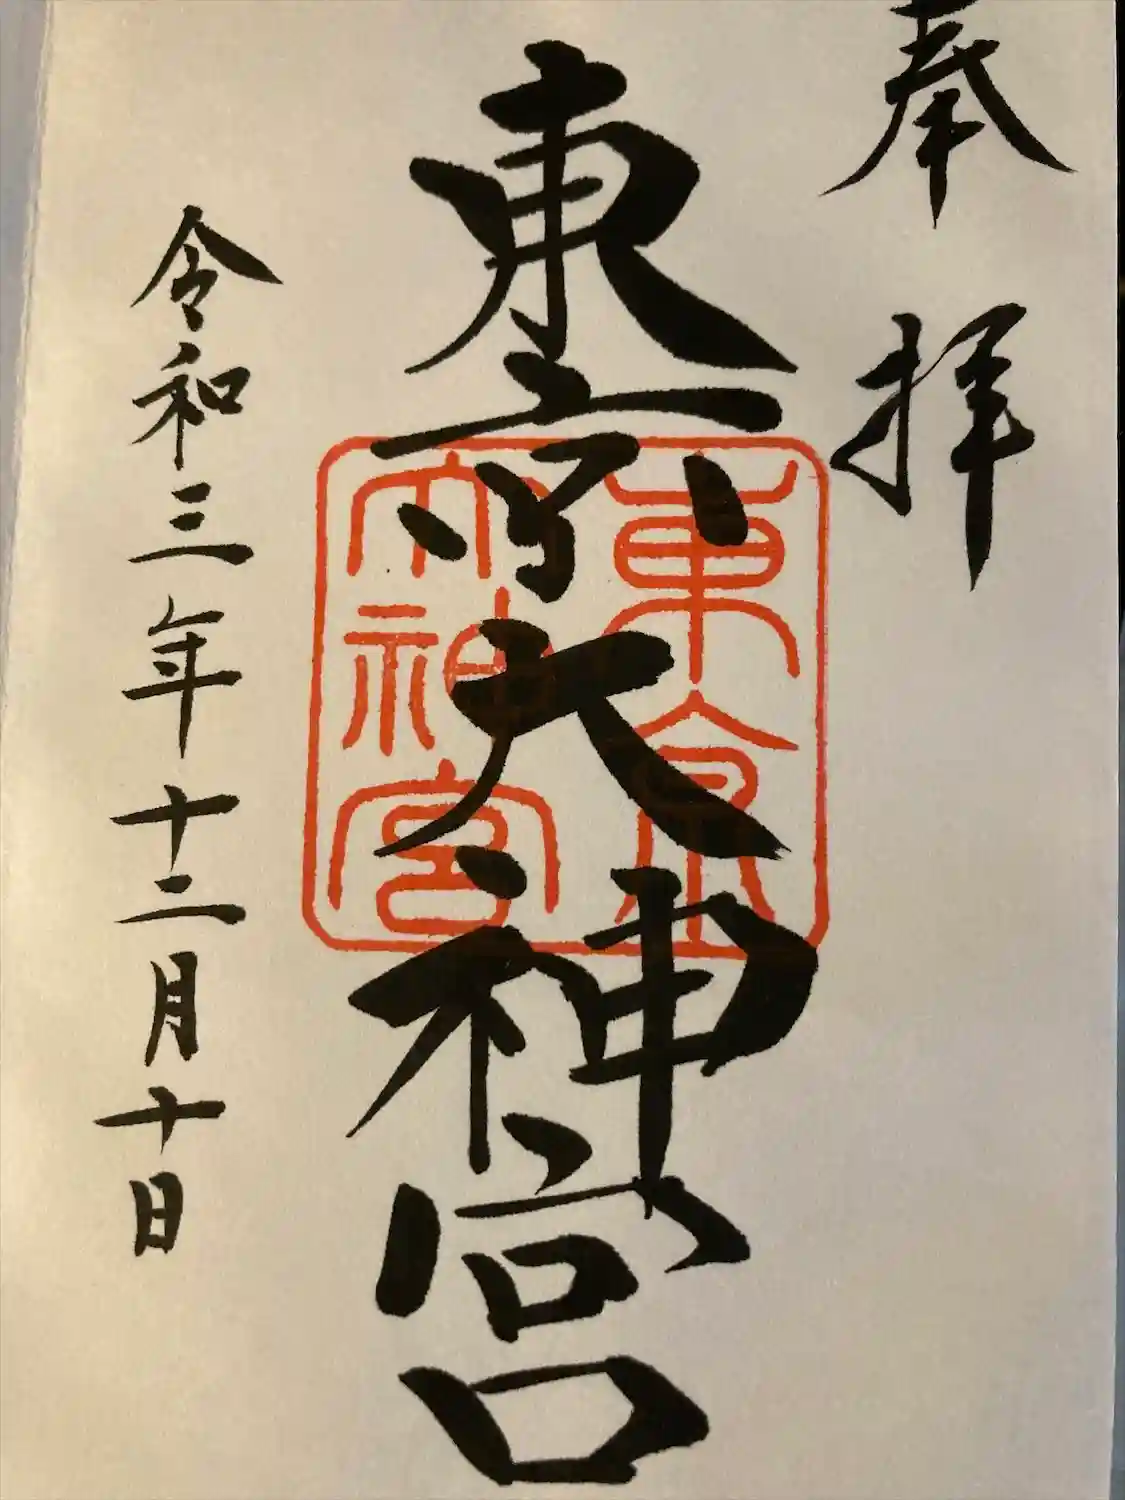 奉拝
東京大神宮
東京
大神宮
令和三年十二月十日